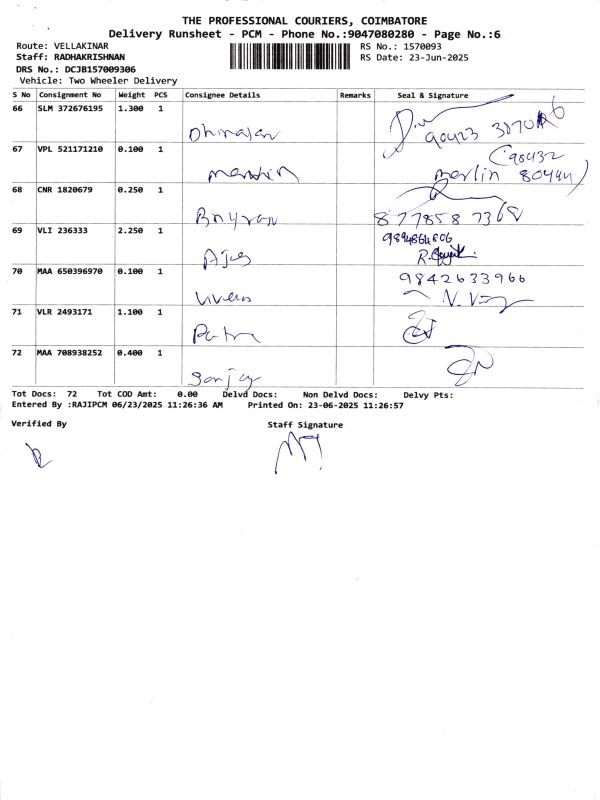 THE PROFESSIONAL COURIERS, COIMBATORE
Delivery Runsheet - PCM - Phone No.:9047080280 - Page No.:6
Route: VELLAKINAR
RS No.: 1570093
Staff: RADHAKRISHNAN
RS Date: 23-Jun-2025
DRS No.: DCJB157009306
Vehicle: Two Wheeler Delivery
S No Consignment No Weight PCS Consignee Details Remarks Seal & Signature
66 SLM 372676195 1.300 1
67 VPL 521171210 0.100 1
merlin
68 CNR 1820679 0.250 1
877858 7368
69 VLI 236333 2.250 1
9894864806
70 MAA 650396970 0.100 1
9842633966
71 VLR 2493171 1.100 1
72 MAA 708938252 0.400 1
Sanjay
Tot Docs: 72 Tot COD Amt: 0.00 Delvd Docs: Non Delvd Docs: Delvy Pts:
Entered By :RAJIPCM 06/23/2025 11:26:36 AM Printed On: 23-06-2025 11:26:57
Verified By Staff Signature